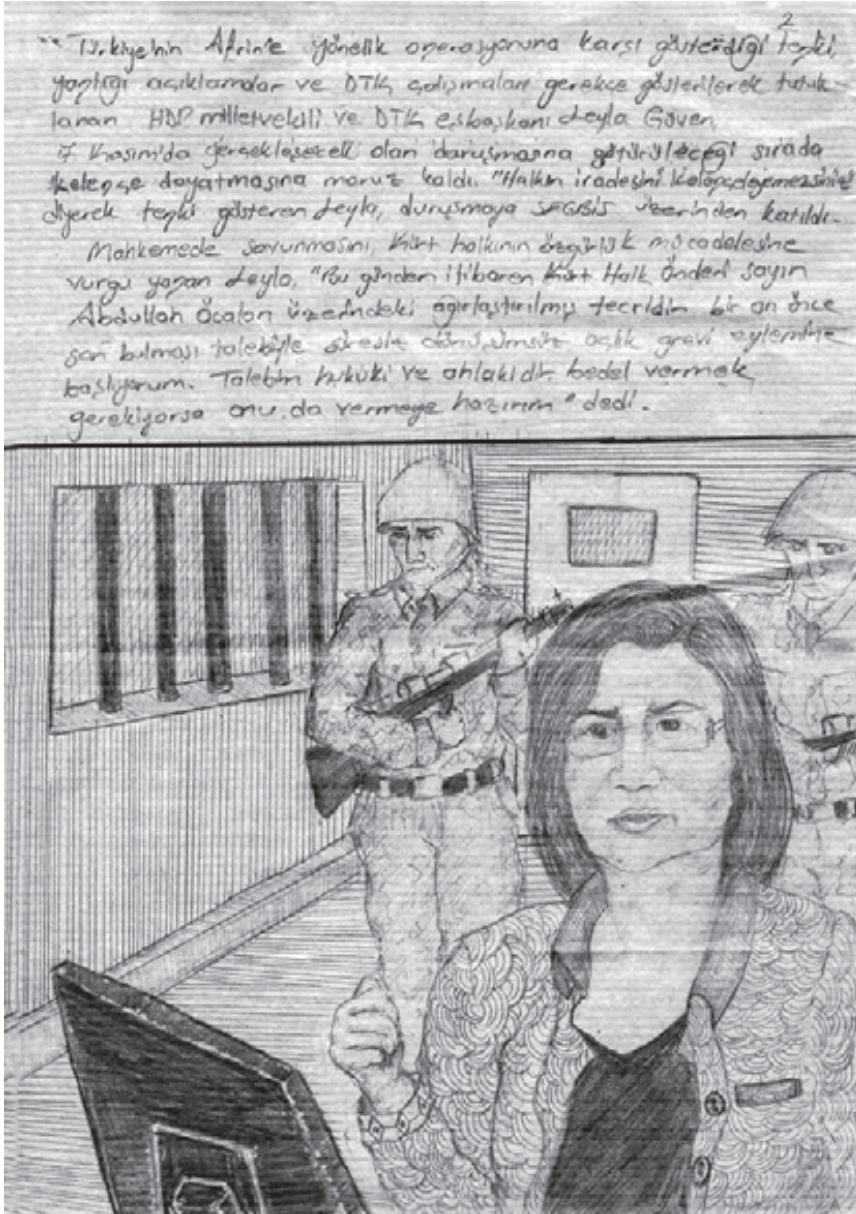 2
"Türkiye'nin Afrin'e yönelik operasyonuna karşı gösterdiği tepki,
yaptığı açıklamalar ve DTK çalışmaları gerekçe gösterilerek tutuk-
lanan HDP milletvekili ve DTK eşbaşkanı Leyla Güven,
7 Kasım'da gerçekleşecek olan duruşmasına götürüleceği sırada
kelepçe dayatmasına maruz kaldı. "Halkın iradesini kelepçeleyemezsiniz"
diyerek tepki gösteren Leyla, duruşmaya SEGBİS üzerinden katıldı.
Mahkemede savunmasını, Kürt halkının özgürlük mücadelesine
vurgu yapan Leyla, "Bu günden itibaren Kürt Halk Önderi sayın
Abdullah Öcalan üzerindeki ağırlaştırılmış tecridin bir an önce
son bulması talebiyle süresiz dönüşümsüz açlık grevi eylemine
başlıyorum. Talebim hukuki ve ahlakidir. bedel vermek
gerekiyorsa onu da vermeye hazırım" dedi.